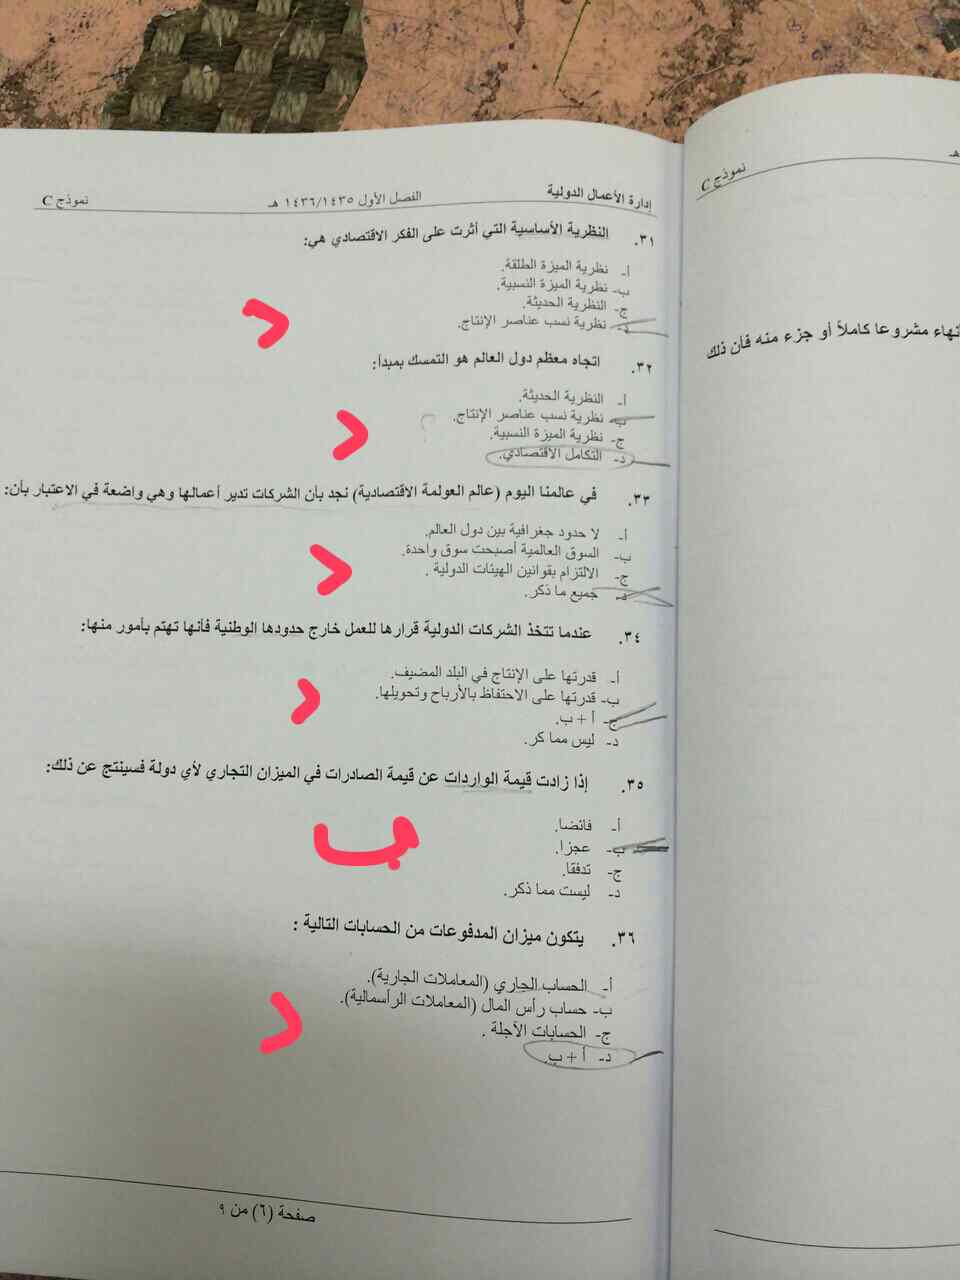 إدارة الأعمال الدولية الفصل الأول ١٤٣٦/١٤٣٥ هـ نموذج C
٣١. النظرية الأساسية التي أثرت على الفكر الاقتصادي هي:
أ- نظرية الميزة الطلقة.
ب- نظرية الميزة النسبية.
ج- النظرية الحديثة.
د- نظرية نسب عناصر الإنتاج.
د
٣٢. اتجاه معظم دول العالم هو التمسك بمبدأ:
أ- النظرية الحديثة.
ب- نظرية نسب عناصر الإنتاج.
؟
ج- نظرية الميزة النسبية.
د- التكامل الاقتصادي.
د
٣٣. في عالمنا اليوم (عالم العولمة الاقتصادية) نجد بأن الشركات تدير أعمالها وهي واضعة في الاعتبار بأن:
أ- لا حدود جغرافية بين دول العالم.
ب- السوق العالمية أصبحت سوق واحدة.
ج- الالتزام بقوانين الهيئات الدولية .
د- جميع ما ذكر.
د
٣٤. عندما تتخذ الشركات الدولية قرارها للعمل خارج حدودها الوطنية فأنها تهتم بأمور منها:
أ- قدرتها على الإنتاج في البلد المضيف.
ب- قدرتها على الاحتفاظ بالأرباح وتحويلها.
ج- أ + ب.
د- ليس مما كر.
د
٣٥. إذا زادت قيمة الواردات عن قيمة الصادرات في الميزان التجاري لأي دولة فسينتج عن ذلك:
أ- فائضا.
ب- عجزا.
ج- تدفقا.
د- ليست مما ذكر.
ب
٣٦. يتكون ميزان المدفوعات من الحسابات التالية :
أ- الحساب الجاري (المعاملات الجارية).
ب- حساب رأس المال (المعاملات الرأسمالية).
ج- الحسابات الآجلة .
د- أ + ب.
د
صفحة (٦) من ٩
هـ
نموذج C
تهاء مشروعا كاملاً أو جزء منه فأن ذلك